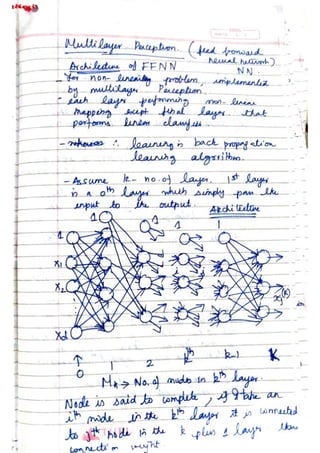 Multilayer Perception. (feed forward
neural network)
Architecture of FFNN NN.
- For non-linearity problem, implemented
by multilayer Perception
- each layer performing non-linear
mapping except final layer that
performs linear classifier.
- whereas ∴ learning is back propagation
learning algorithm.
- Assume K- no. of layer. 1st layer
is a 0th layer which simply pass the
input to the output.
Architecture
1 1 1 1 1
1
x1
x2
xd
0 1 2 kth k-1 K
Mk → No. of nodes in kth layer.
Node is said to complete, if take an
ith node in the kth layer it is connected
to jth node in the k plus 1 layer then
connection weight